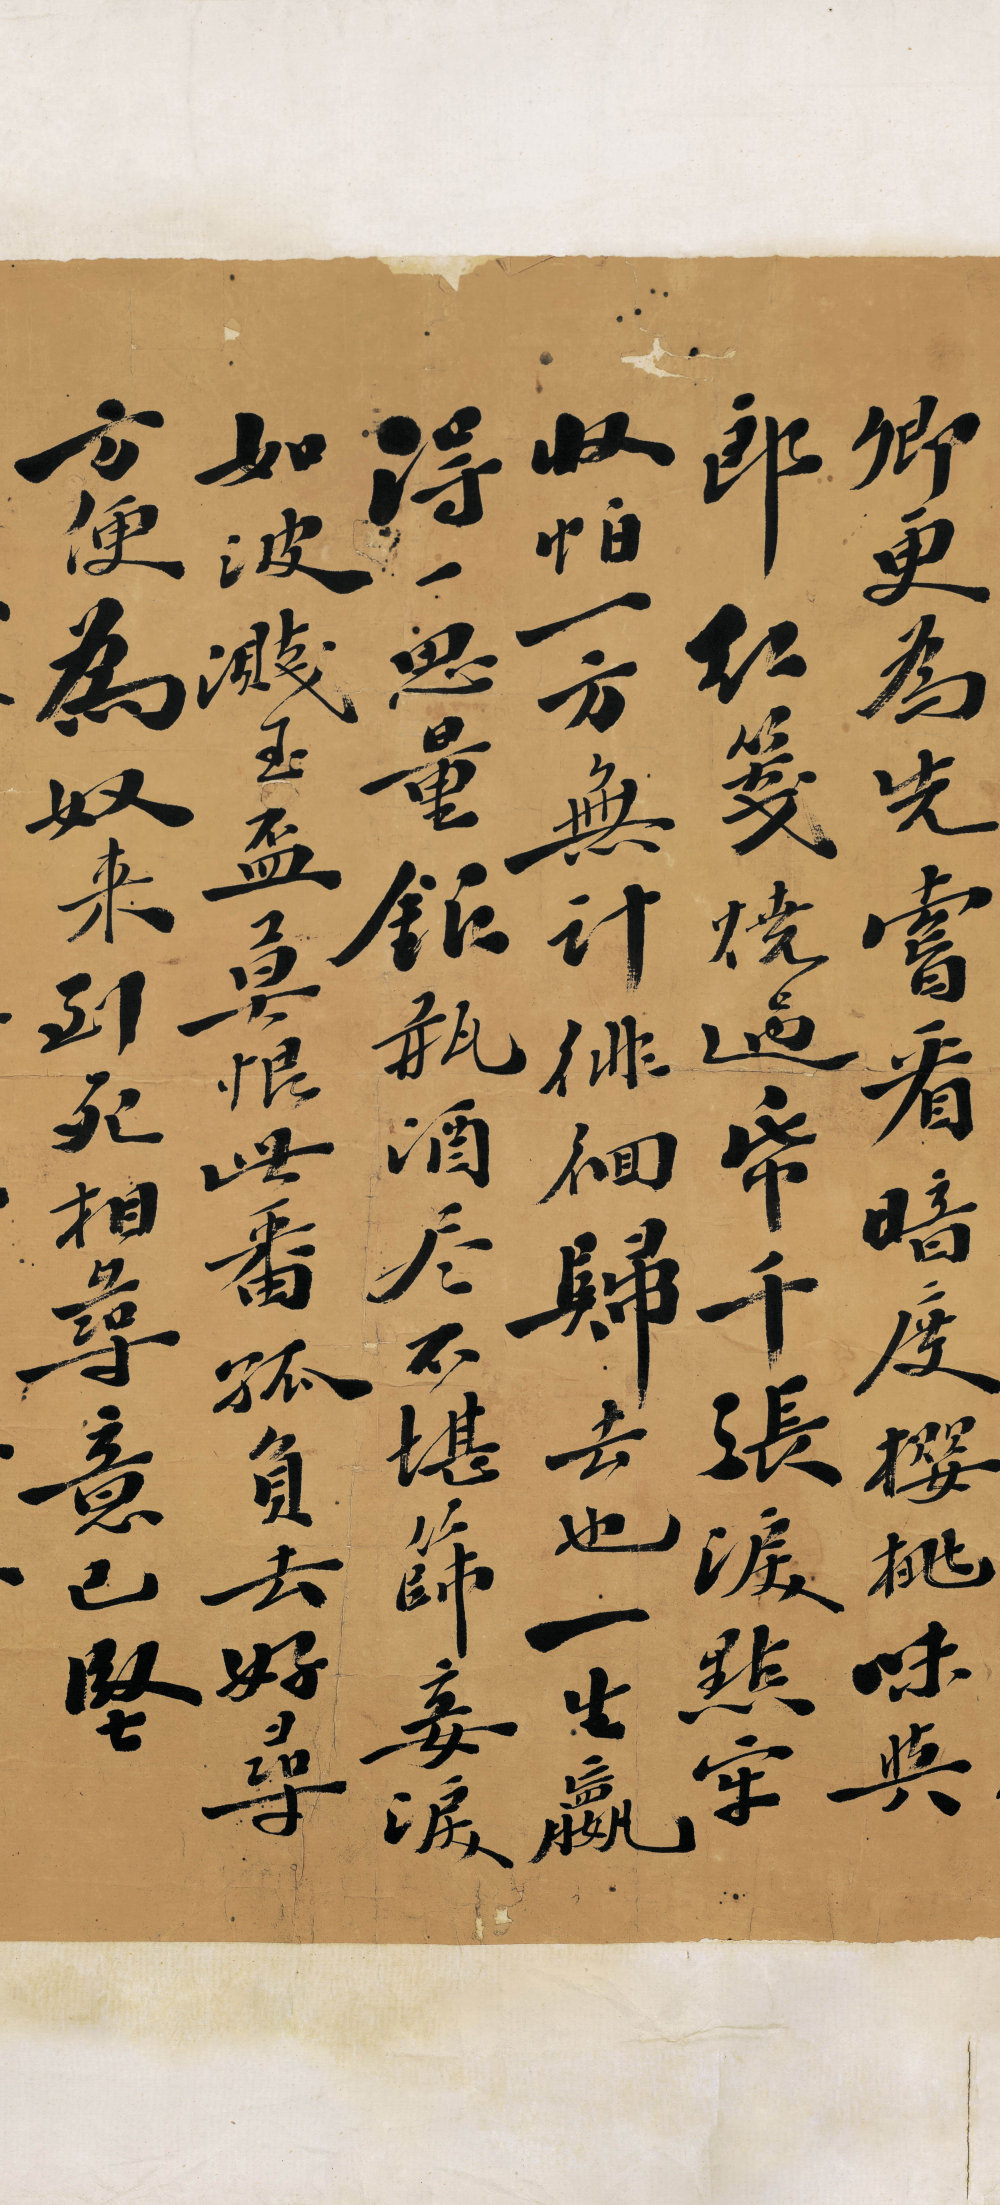 卿更為先嘗看暗度櫻桃味與
郎紅箋燒過帋千張淚點牢
收怕一方無計徘徊歸去也一生嬴
得一思量銀瓶酒尽不堪篩妾淚
如波濺玉盃莫恨此番孤負去好尋
方便為奴来到死相尋意已堅